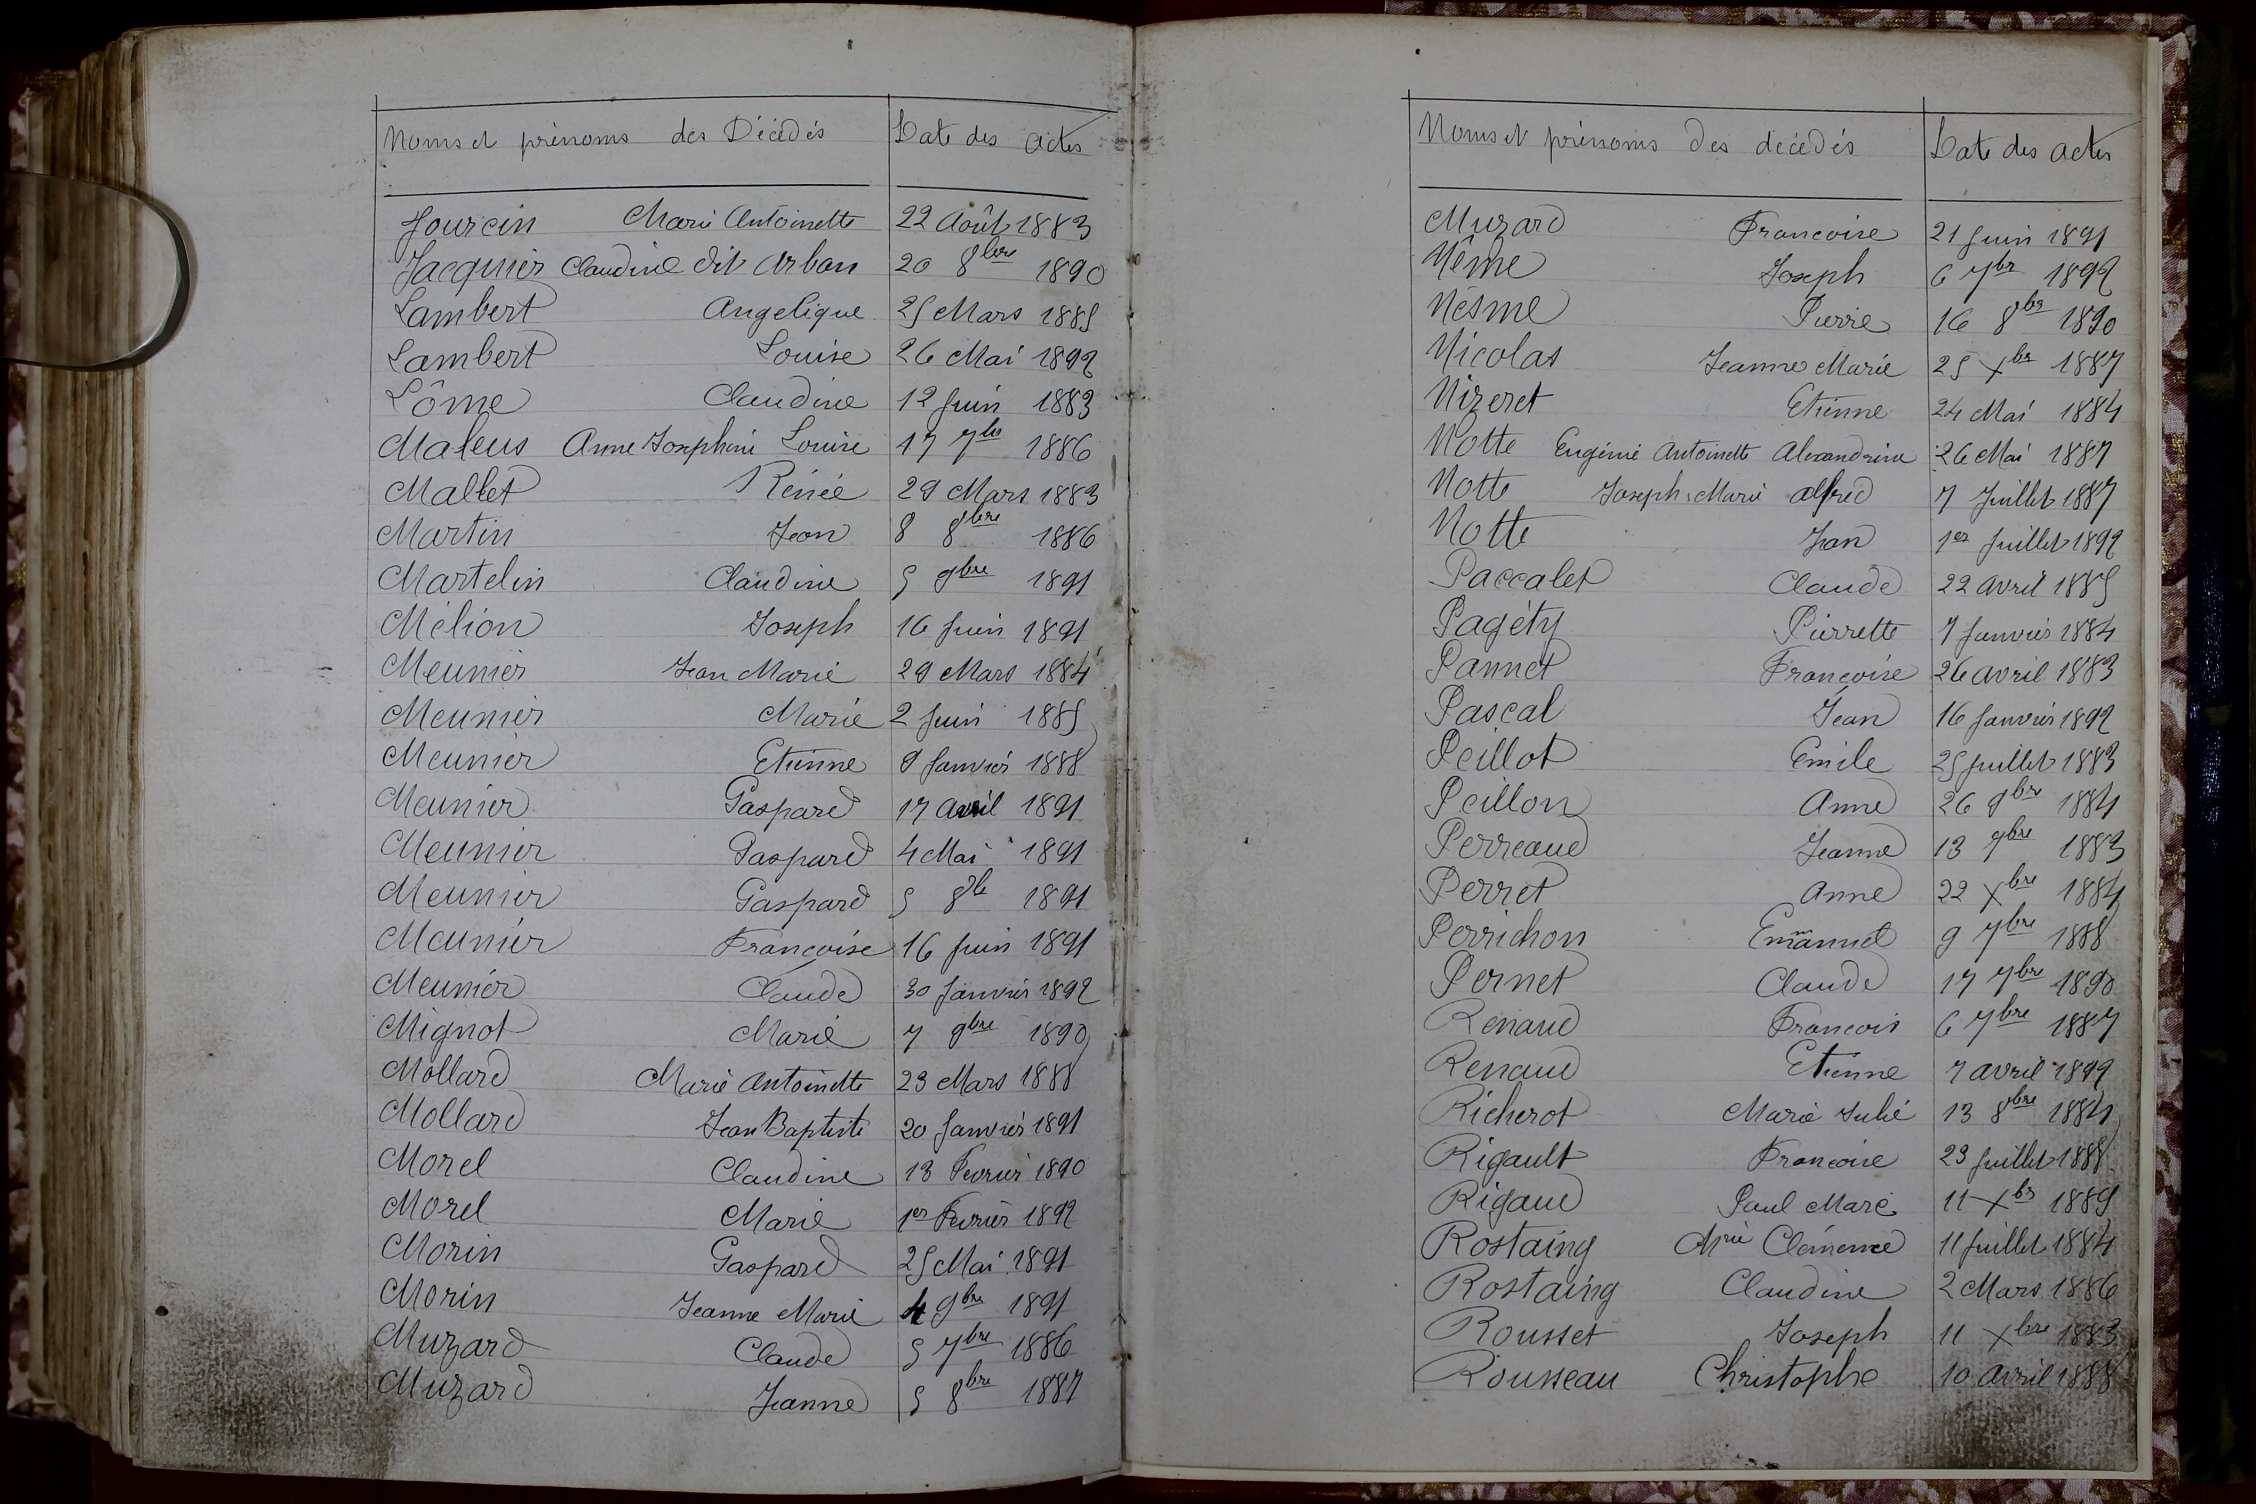 Noms et prénoms des Décédés Date des actes
Jourcin Marie Antoinette 22 Août 1883
Jacquier Claudine dit Arban 20 8bre 1890
Lambert Angelique 25 Mars 1885
Lambert Louise 26 Mai 1892
Lôme Claudine 12 Juin 1883
Maleus Anne Josephine Louise 17 7bre 1886
Mallet Rénée 29 Mars 1883
Martin Jean 8 8bre 1886
Martelin Claudine 5 9bre 1891
Mélion Joseph 16 Juin 1891
Meunier Jean Marie 29 Mars 1884
Meunier Marie 2 Juin 1885
Meunier Etienne 9 Janvier 1888
Meunier Gaspard 17 avril 1891
Meunier Gaspard 4 Mai 1891
Meunier Gaspard 5 8b 1891
Meunier Françoise 16 Juin 1891
Meunier Claude 30 Janvier 1892
Mignot Marie 7 9bre 1890
Mollard Marie Antoinette 23 Mars 1888
Mollard Jean Baptiste 20 Janvier 1891
Morel Claudine 13 Fevrier 1890
Morel Marie 1er Fevrier 1892
Morin Gaspard 25 Mai 1891
Morin Jeanne Marie 4 9bre 1891
Muzard Claude 5 7bre 1886
Muzard Jeanne 5 8bre 1887
Noms et prénoms des décédés Date des actes
Muzard Francoise 21 Juin 1891
Même Joseph 6 7br 1892
Nésme Pierre 16 8br 1890
Nicolas Jeanne Marie 25 Xbr 1887
Nizeret Etienne 24 Mai 1884
Notte Eugénie Antoinette Alexandrine 26 Mai 1887
Notte Joseph Marie alfred 7 Juillet 1887
Notte Jean 1er Juillet 1892
Paccalet Claude 22 avril 1885
Pagéty Pierrette 7 Janvier 1884
Pannet Françoise 26 avril 1883
Pascal Jean 16 Janvier 1892
Peillot Emile 25 Juillet 1883
Peillon Anne 26 9bre 1884
Perreaud Jeanne 13 9bre 1883
Perret Anne 22 Xbre 1884
Perrichon Emannuel 9 7bre 1888
Pernet Claude 17 7bre 1890
Renaud Francois 6 7bre 1887
Renaud Etienne 7 avril 1892
Richerot Marie Julie 13 8bre 1884
Rigault Francoise 23 Juillet 1888
Rigaud Paul Marc 11 Xbr 1889
Rostaing Mrie Clémence 11 Juillet 1884
Rostaing Claudine 2 Mars 1886
Rousset Joseph 11 Xbre 1883
Rousseau Christophe 10 avril 1888